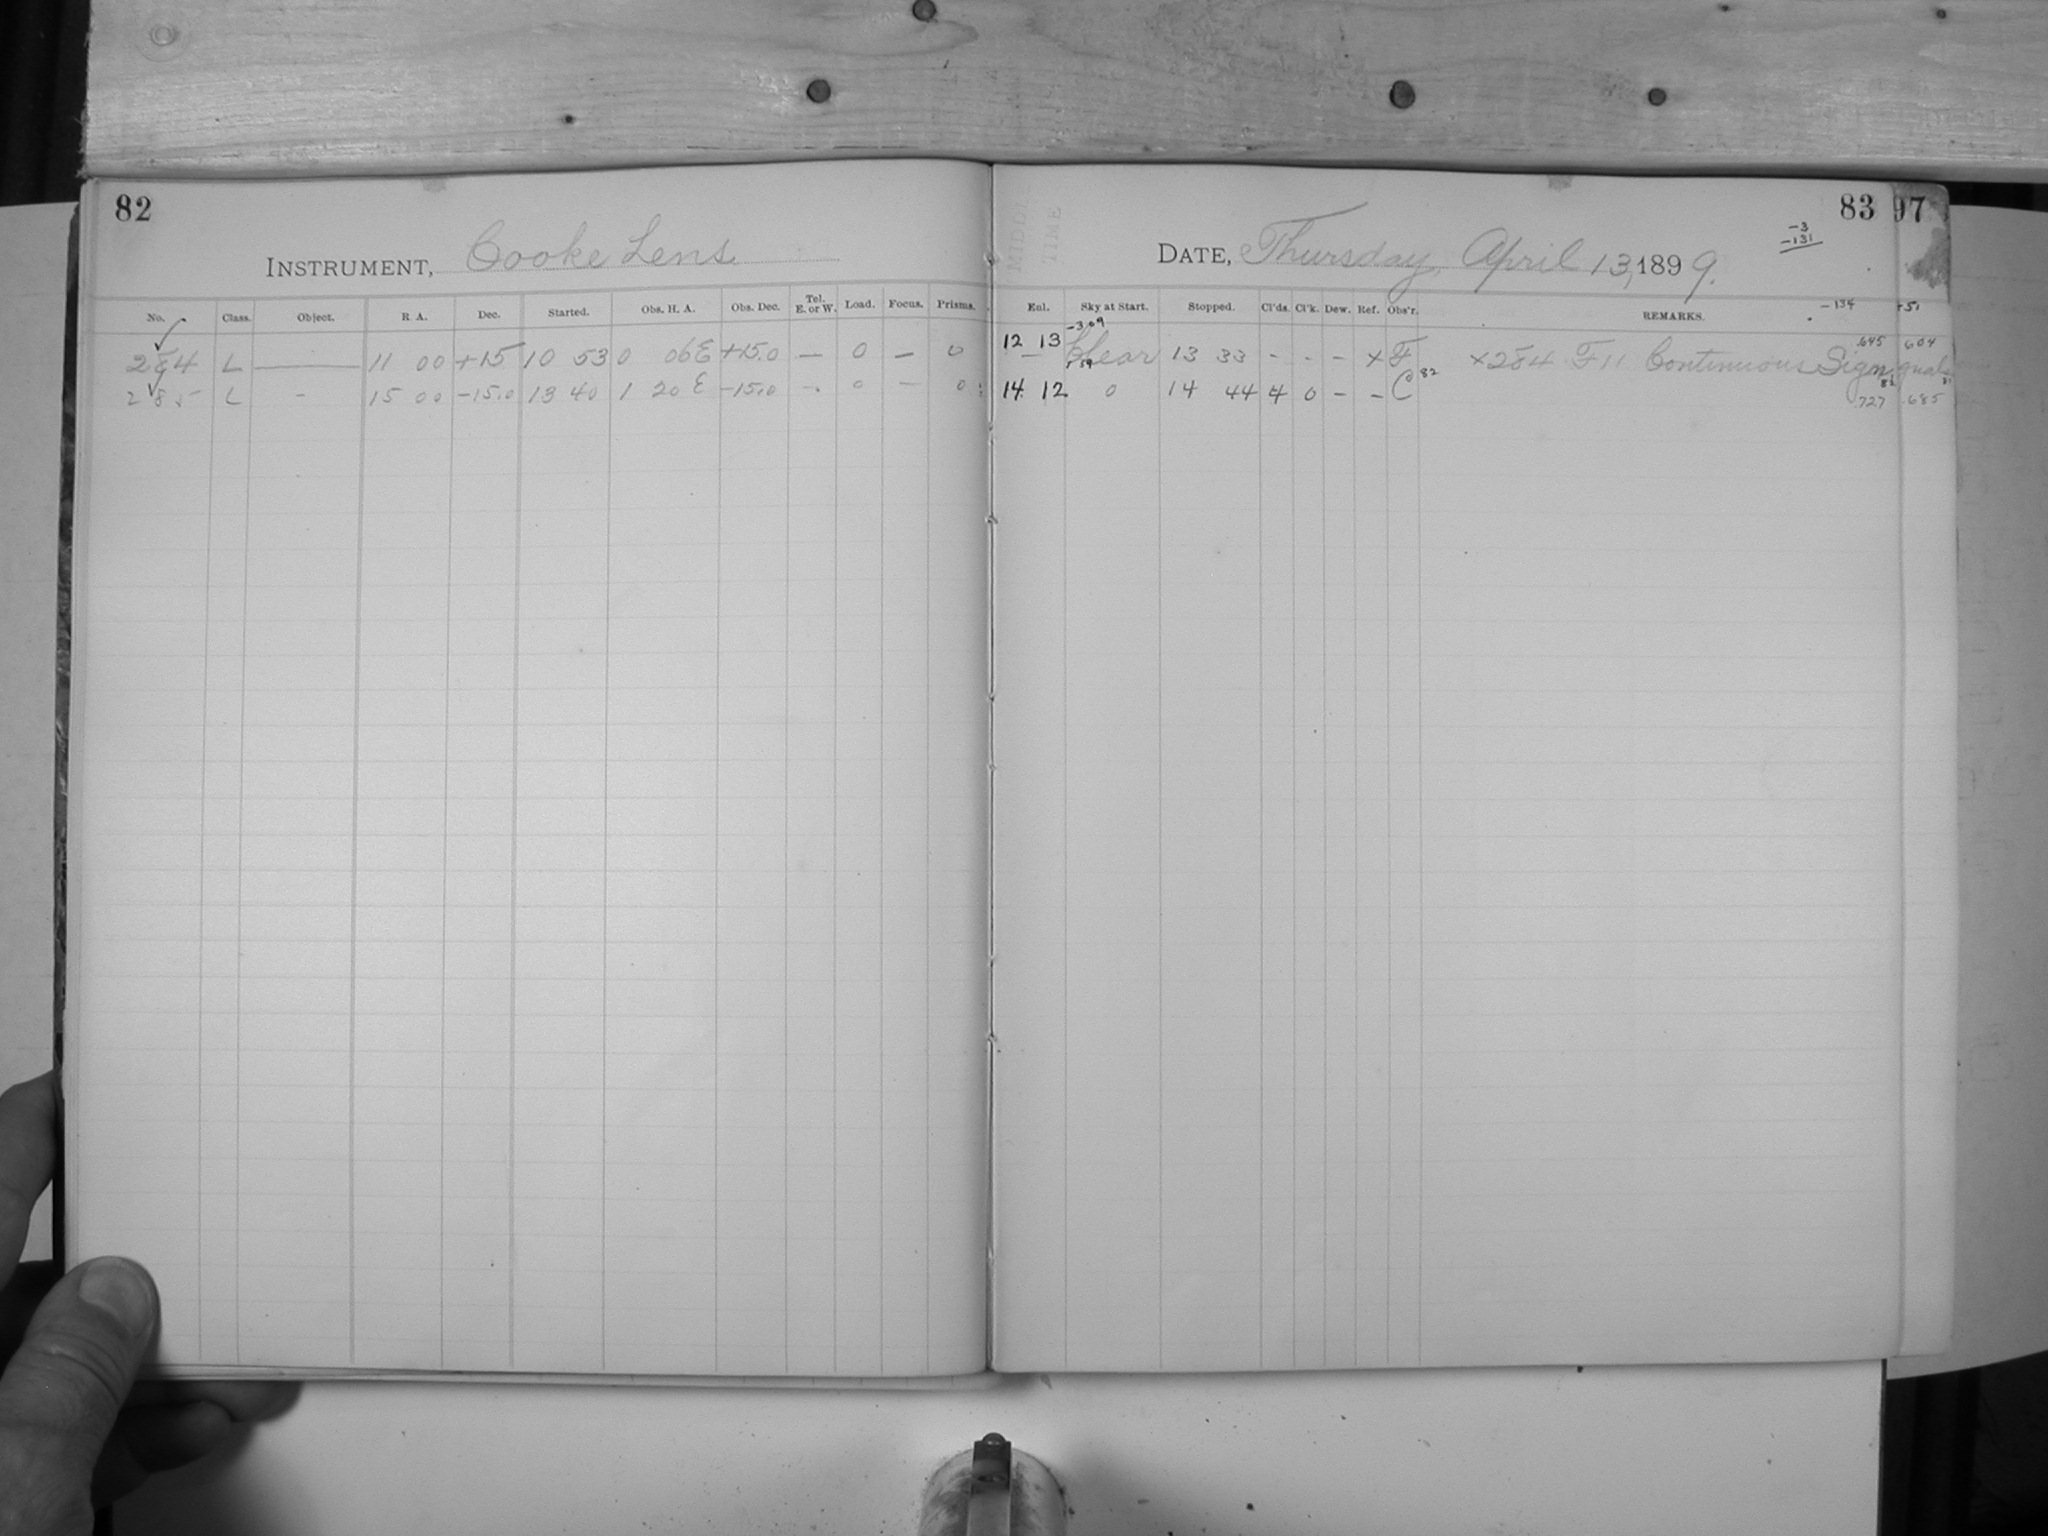 82
INSTRUMENT, Cooke Lens
No. Class. Object. R A. Dec. Started. Obs. H. A. Obs. Dec. Tel. E. or W. Load. Focus. Prisms.
284 L — 11 00 +15 10 53 0 06E +15.0 — 0 — 0
285 L - 15 00 -15.0 13 40 1 20 E -15.0 - 0 - 0
MIDDLE TIME
83 97
-3
-131
DATE, Thursday April 13, 1899.
Enl. Sky at Start. Stopped. Cl'ds. Cl'k. Dew. Ref. Obs'r. REMARKS. -134 +51
12 13 -3.09 Clear 13 33 - - - x F x 284 F 11 Continuous Signals .645 .604
14 12 0 14 44 4 0 - - C 82 .727 .685